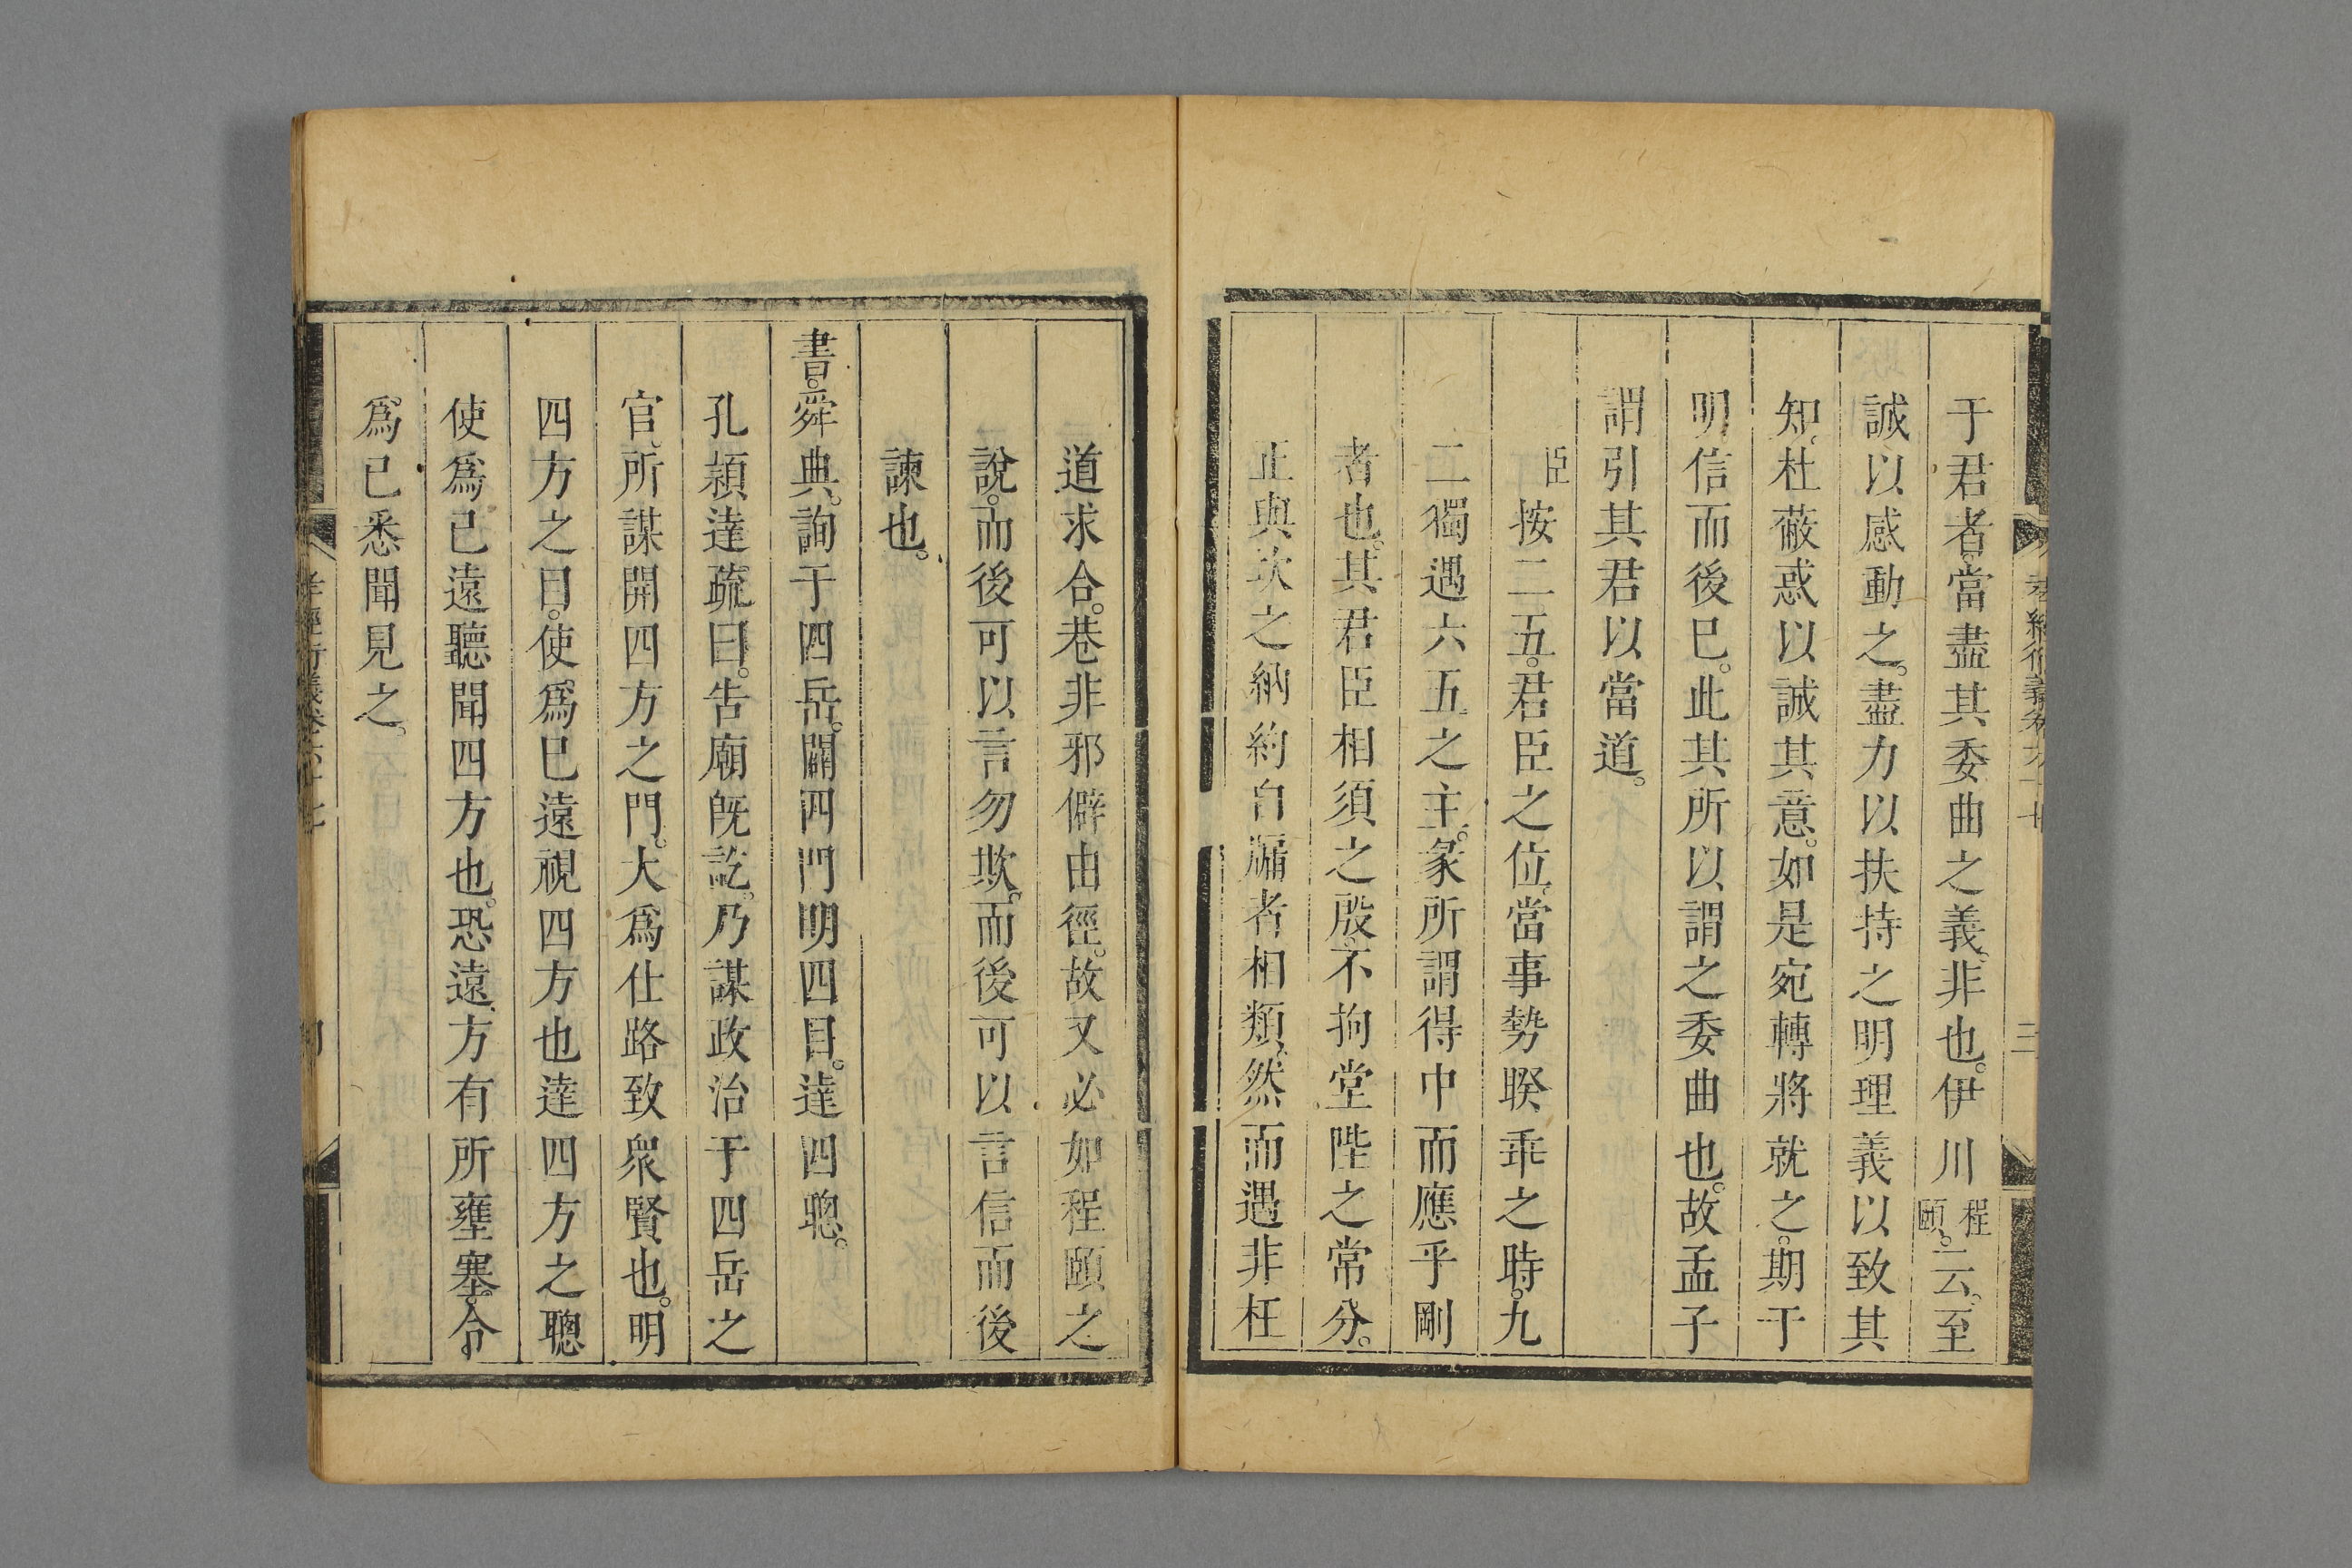 于君者。當盡其委曲之義。非也。伊川程頤。云。至
誠以感動之。盡力以扶持之明理義以致其
知。杜蔽惑以誠其意。如是宛轉將就之。期于
明信而後已。此其所以謂之委曲也。故孟子
謂引其君以當道。
臣按二五。君臣之位。當事勢睽乖之時。九
二獨遇六五之主。彖所謂得中而應乎剛
者也。其君臣相須之殷。不拘堂陛之常分。
正與坎之納約自牖者相類。然而遇非枉
道求合。巷非邪僻由徑。故又必如程頤之
說。而後可以言勿欺。而後可以言信而後
諫也。
書。舜典。詢于四岳。闢四門明四目。達四聰。
孔頴達疏曰。告廟旣訖。乃謀政治于四岳之
官。所謀開四方之門。大爲仕路致衆賢也。明
四方之目。使爲已遠視四方也達四方之聰
使爲己遠聽聞四方也。恐遠方有所壅塞。令
爲己悉聞見之。
孝經衍義卷六十七